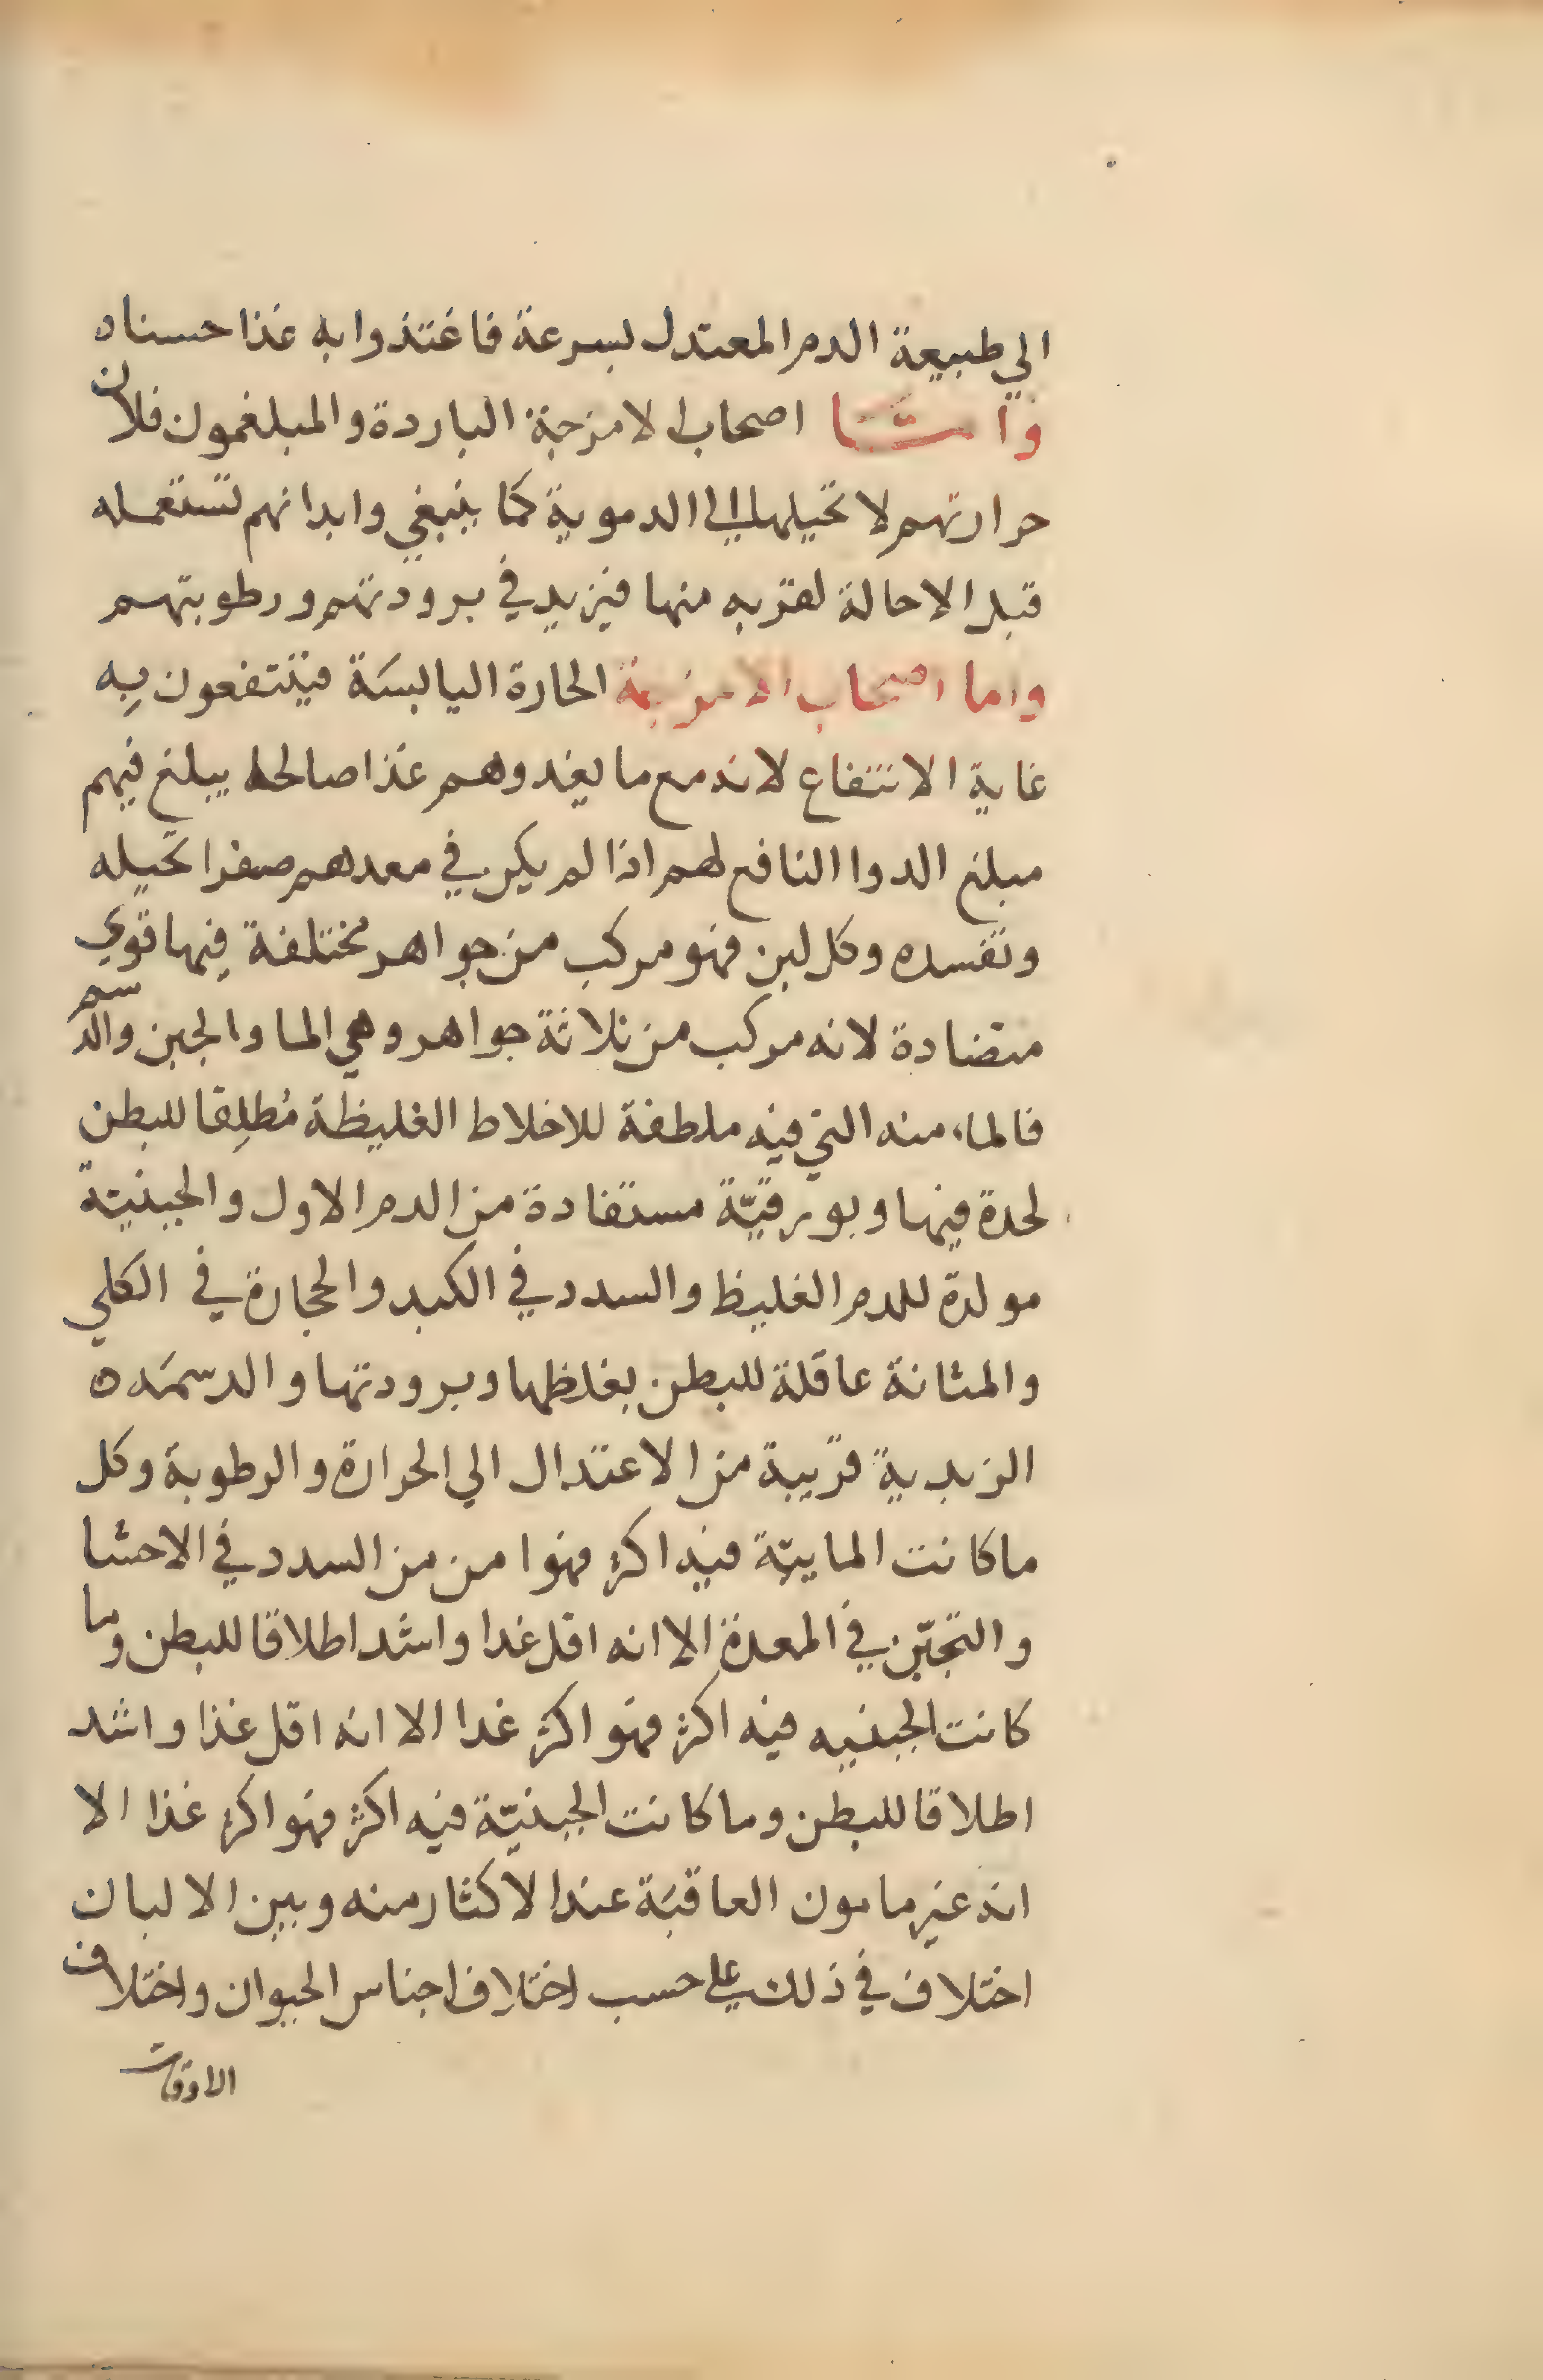 الي طبيعة الدم المعتدل بسرعة فاغتذوا به غذا حسنا ه
وامّا اصحاب الامزجة الباردة والمبلغمون فلان
حرارتهم لا تحيلها الي الدموية كما ينبغي وابدانهم تستعمله
قبل الاحالة لقربه منها فيزيد في برودتهم ورطوبتهم
واما اصحاب الامزجة الحارة اليابسَة فينتفعون بِه
غاية الانتفاع لانه مع ما يغدوهم غذا صالحا يبلغ فيهم
مبلغ الدوا النافع لهم اذا لم يكن في معدهم صفرا تحيله
وتفسده وكل لبن فهو مركب من جواهر مختلفة فيها قوي
متضادة لانه مركب من ثلاثة جواهر وهي الما والجبن والدسم
فالماء منه التي فيه ملطفة للاخلاط الغليظة مُطلِقا للبطن
لحدة فيها وبورقيّة مستفادة من الدم الاول والجبنيّة
مولدة للدم الغليظ والسدد في الكبد والحجارة في الكلي
والمثانة عاقلة للبطن بغلظها وبرودتها والدسمَه ه
الزبدية قريبة من الاعتدال الي الحرارة والرطوبة وكل
ما كانت الماييّة فيه اكثر فهو امن من السدد في الاحشا
والتجبّن في المعدة الا انه اقل غدا واشد اطلاقا للبطن وما
كانت الجبنيه فيه اكثر فهو اكثر غدا الا انه اقل غذا واشد
اطلاقا للبطن وما كانت الجبنيّة فيه اكثر فهو اكثر غذا الا
انه غير مامون العاقبَة عند الاكثار منه وبين الالبان
اختلاف في ذلك علي حسب اختلاف اجناس الحيوان واختلاف
الاوقات